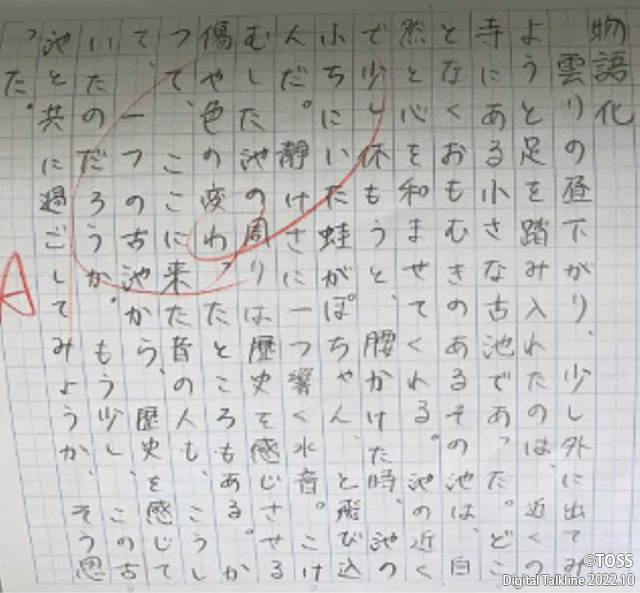 物語化
雲りの昼下がり、少し外に出てみ
ようと足を踏み入れたのは、近くの
寺にある小さな古池であった。どこ
となくおもむきのあるその池は、自
然と心を和ませてくれる。池の近く
で少し休もうと、腰かけた時、池の
小ちにいた蛙がぽちゃんと飛び込
んだ。静けさに一つ響く水音。こけ
むした池の周りは歴史を感じさせる
傷や色の変わったところもある。か
つて、ここに来た昔の人も、こうし
て、一つの古池から、歴史を感じて
いたのだろうか。もう少し、この古
池と共に過ごしてみようか、そう思
った。
A
©TOSS
Digital Talkline 2022.10